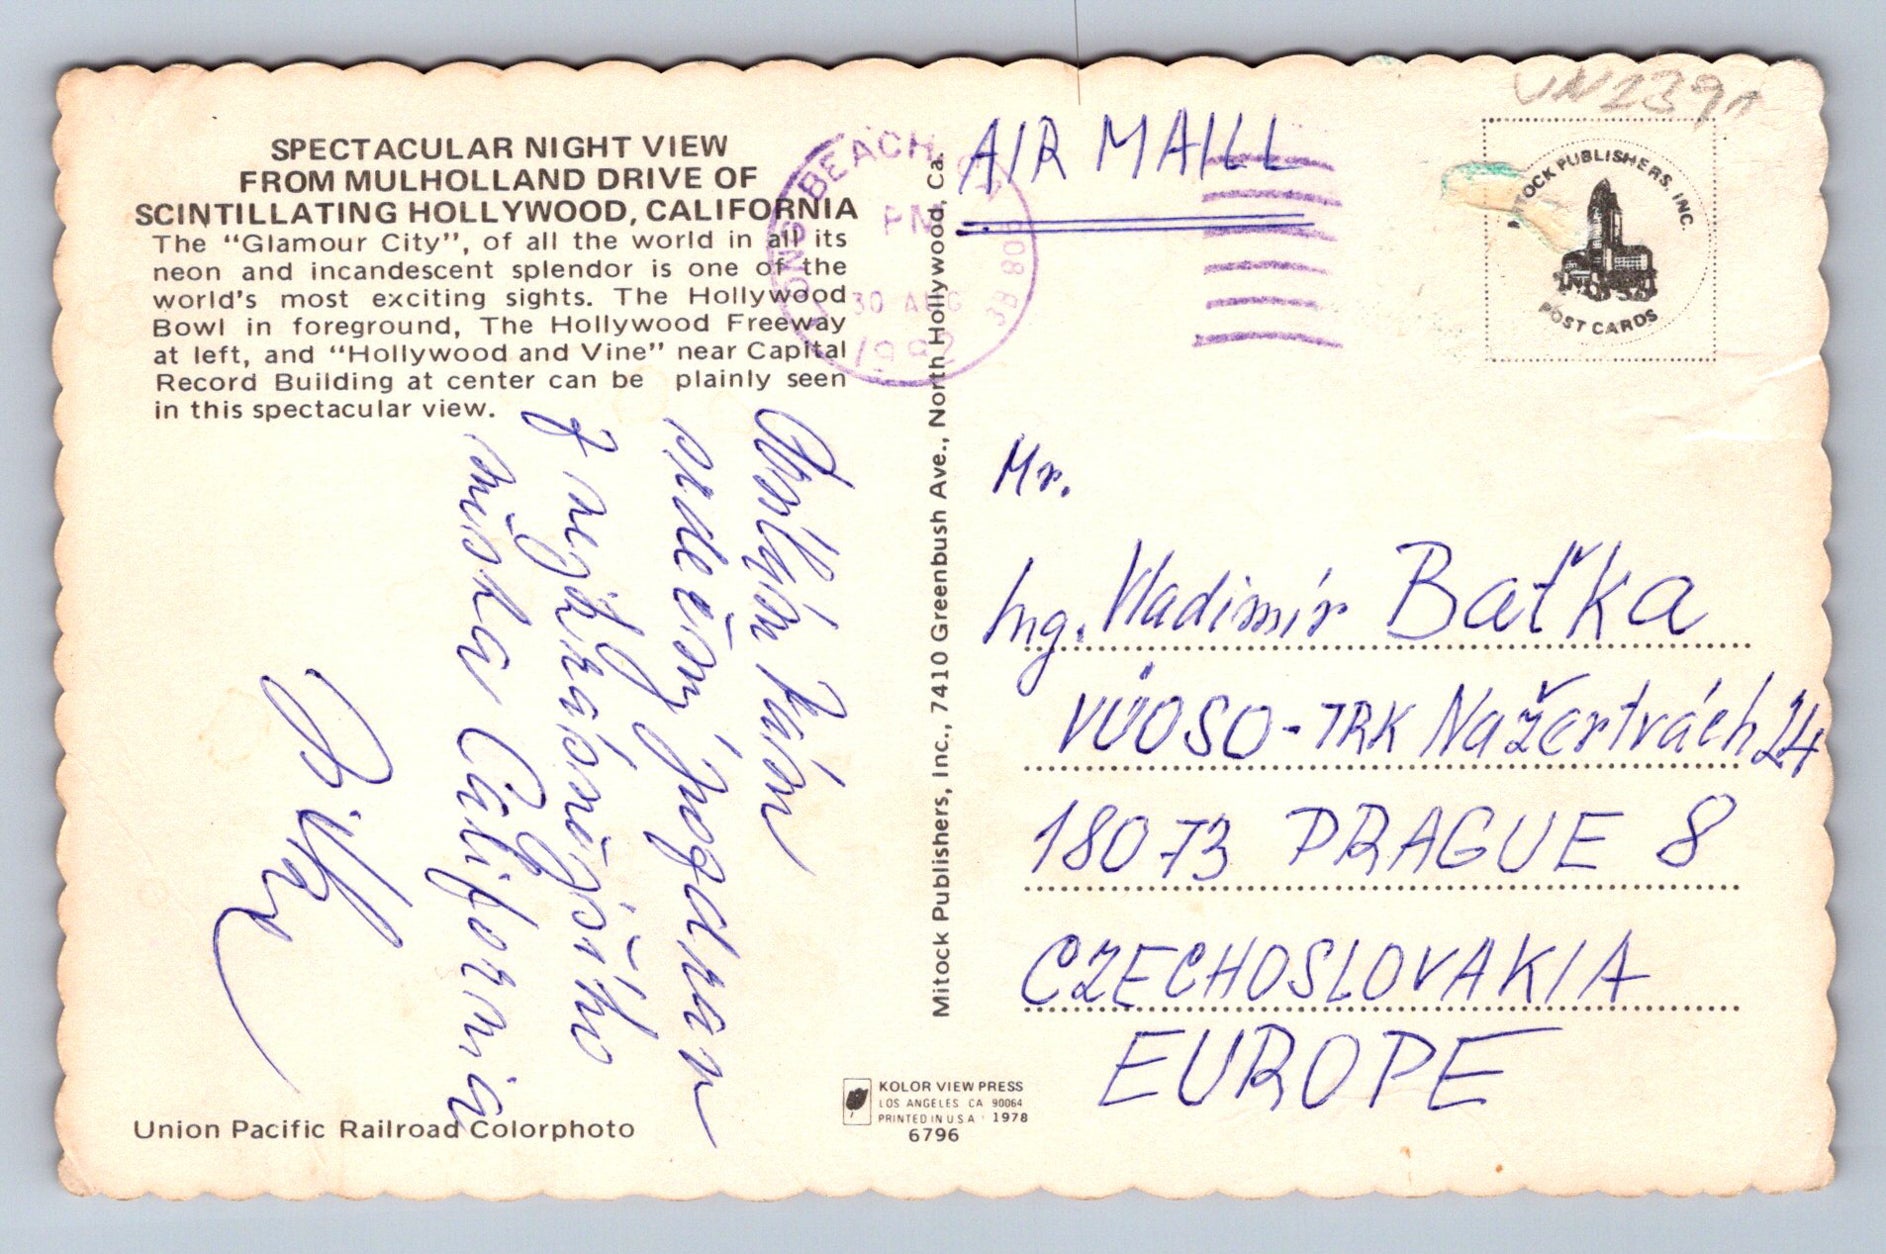 SPECTACULAR NIGHT VIEW
FROM MULHOLLAND DRIVE OF
SCINTILLATING HOLLYWOOD, CALIFORNIA
The "Glamour City", of all the world in all its
neon and incandescent splendor is one of the
world's most exciting sights. The Hollywood
Bowl in foreground, The Hollywood Freeway
at left, and "Hollywood and Vine" near Capital
Record Building at center can be plainly seen
in this spectacular view.
srdečný pozdrav
z nejkrásnějšího
miska California
Jirka
Union Pacific Railroad Colorphoto
Mitock Publishers, Inc., 7410 Greenbush Ave., North Hollywood, Ca.
KOLOR VIEW PRESS
LOS ANGELES CA 90064
PRINTED IN U S A 1978
6796
LONG BEACH, CA 908
PM
30 AUG
1992
AIR MAILL
MITOCK PUBLISHERS, INC.
POST CARDS
Mr.
Ing. Vladimír Baťka
VÚOSO-TRK Na Žertvách 24
18073 PRAGUE 8
CZECHOSLOVAKIA
EUROPE